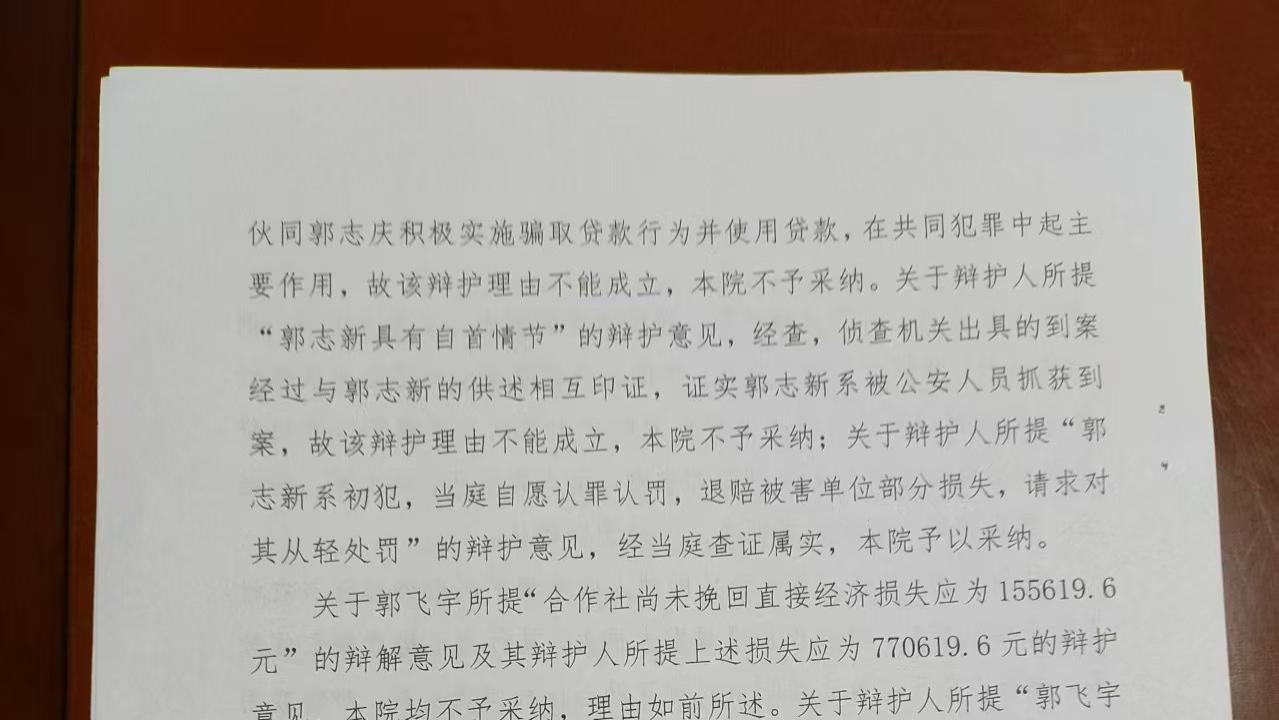 伙同郭志庆积极实施骗取贷款行为并使用贷款，在共同犯罪中起主
要作用，故该辩护理由不能成立，本院不予采纳。关于辩护人所提
“郭志新具有自首情节”的辩护意见，经查，侦查机关出具的到案
经过与郭志新的供述相互印证，证实郭志新系被公安人员抓获到
案，故该辩护理由不能成立，本院不予采纳；关于辩护人所提“郭
志新系初犯，当庭自愿认罪认罚，退赔被害单位部分损失，请求对
其从轻处罚”的辩护意见，经当庭查证属实，本院予以采纳。
关于郭飞宇所提“合作社尚未挽回直接经济损失应为155619.6
元”的辩解意见及其辩护人所提上述损失应为770619.6元的辩护
意见，本院均不予采纳，理由如前所述。关于辩护人所提“郭飞宇